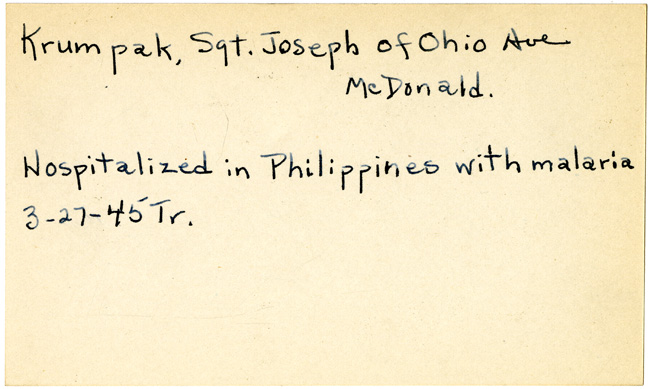 Krumpak, Sgt. Joseph of Ohio Ave
McDonald.
Hospitalized in Philippines with malaria
3-27-45 Tr.